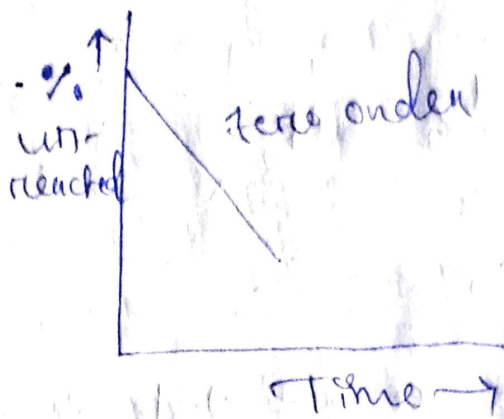 %
un-
reacted
zero order
Time →